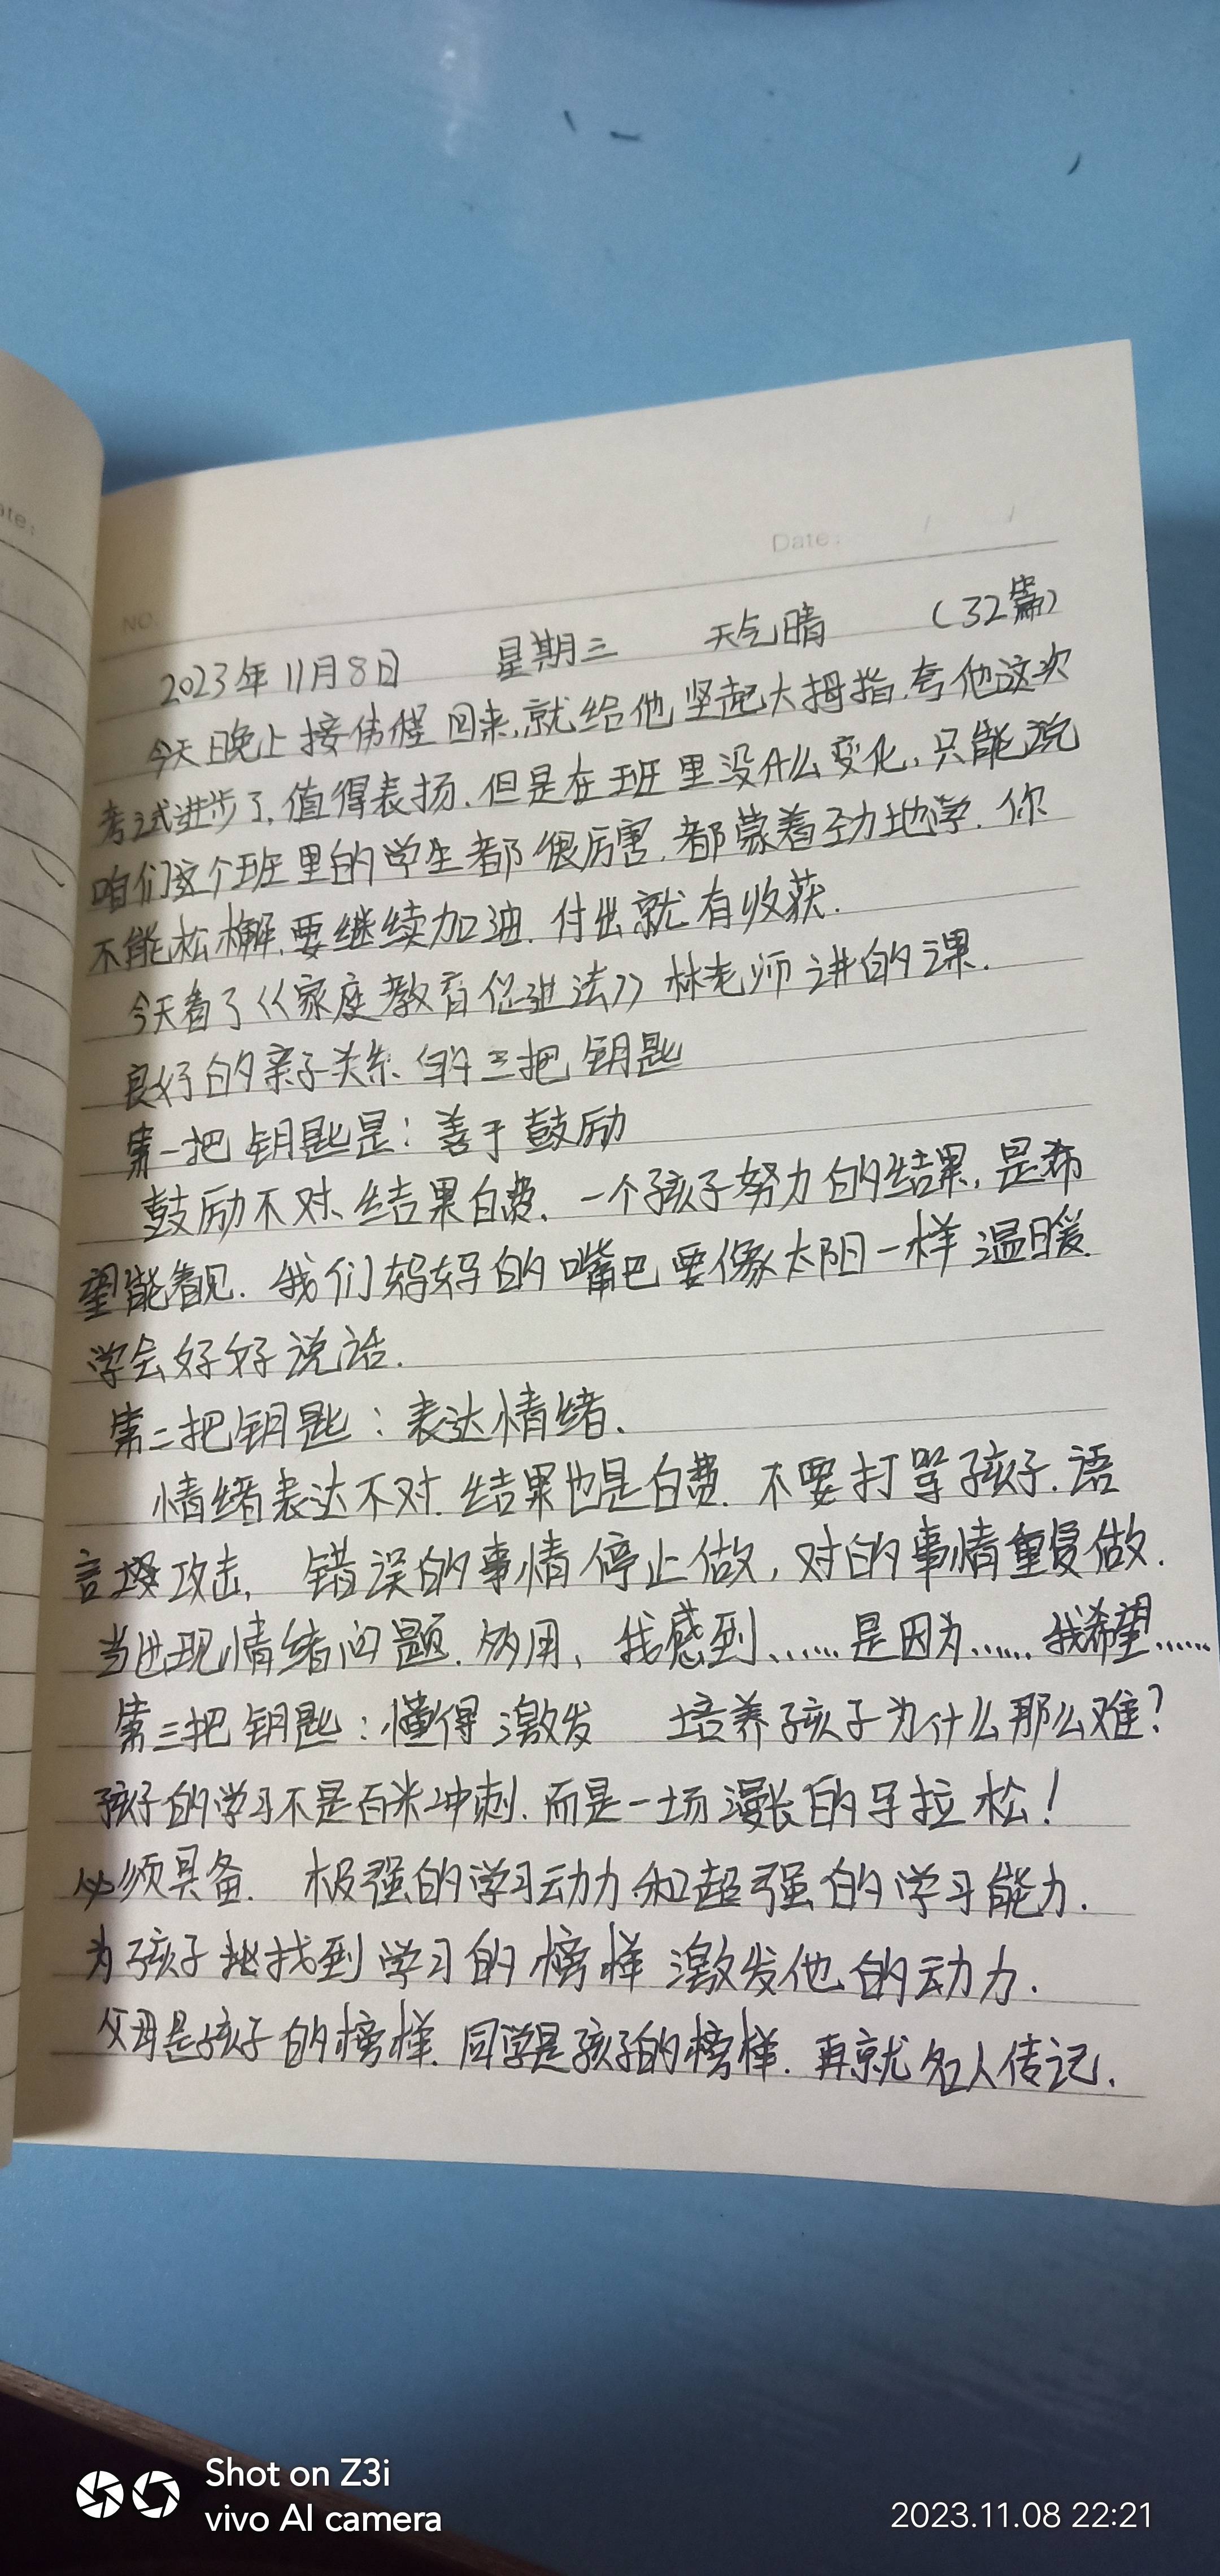 Date:
NO.
2023年11月8日 星期三 天气晴 (32篇)
今天晚上接伟程回来,就给他竖起大拇指.夸他这次
考试进步了,值得表扬.但是在班里没什么变化,只能说
咱们这个班里的学生都很厉害.都蒙着劲地学.你
不能松懈.要继续加油.付出就有收获.
今天看了《家庭教育促进法》林老师讲的课.
良好的亲子关系的三把钥匙
第一把钥匙是:善于鼓励
鼓励不对、结果白费.一个孩子努力的结果,是希
望能看见.我们妈妈的嘴巴要像太阳一样温暖.
学会好好说话.
第二把钥匙:表达情绪.
情绪表达不对.结果也是白费.不要打骂孩子.语
言攻击, 错误的事情停止做,对的事情重复做.
当出现情绪问题.多用、我感到......是因为......我希望......
第三把钥匙:懂得激发 培养孩子为什么那么难?
孩子的学习不是百米冲刺.而是一场漫长的马拉松!
必须具备. 极强的学习动力和超强的学习能力.
为孩子找到学习的榜样 激发他的动力.
父母是孩子的榜样.同学是孩子的榜样.再就名人传记.
Shot on Z3i
vivo AI camera
2023.11.08 22:21